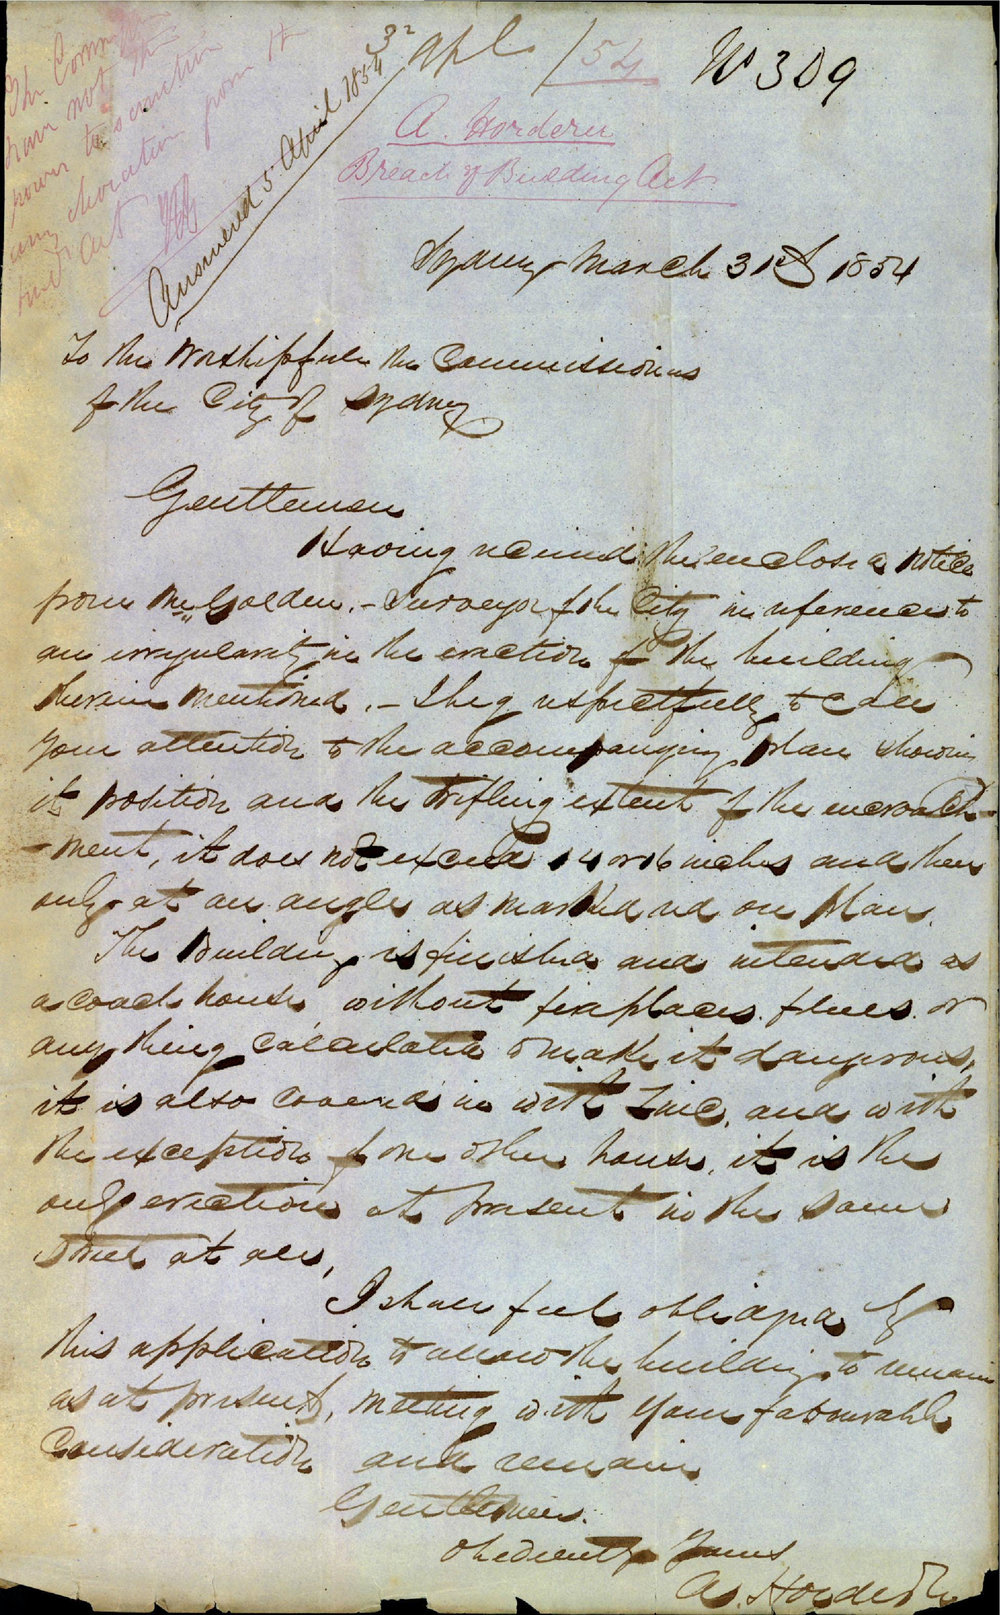 The Comm
have not the
power to sanction
any deviation from the
Buildg Act
Answered 5 April 1854
3 Apl /54
No 309
A. Hordern
Breach of Building Act
Sydney March 31st 1854
To the Worshipful the Commissioners
of the City of Sydney
Gentlemen
Having received the enclosed notice
from Mr Golden, - Surveyor of the City in reference to
an irregularity in the erection of the building
therein mentioned. - I beg respectfully to call
your attention to the accompanying plan showing
its position and the trifling extent of the encroach-
-ment, it does not exceed 14 or 16 inches and then
only at an angle as marked red on plan.
The Building is finished and intended as
a coach house without fireplaces, flues, or
any thing calculated to make it dangerous,
it is also covered in with Zinc, and with
the exception of one other house, it is the
only erection at present in the same
street at all,
I shall feel obliged by
this application to allow the building to remain
as at present, meeting with your favourable
Consideration and remain
Gentlemen.
Obediently Yours
A. Hordern